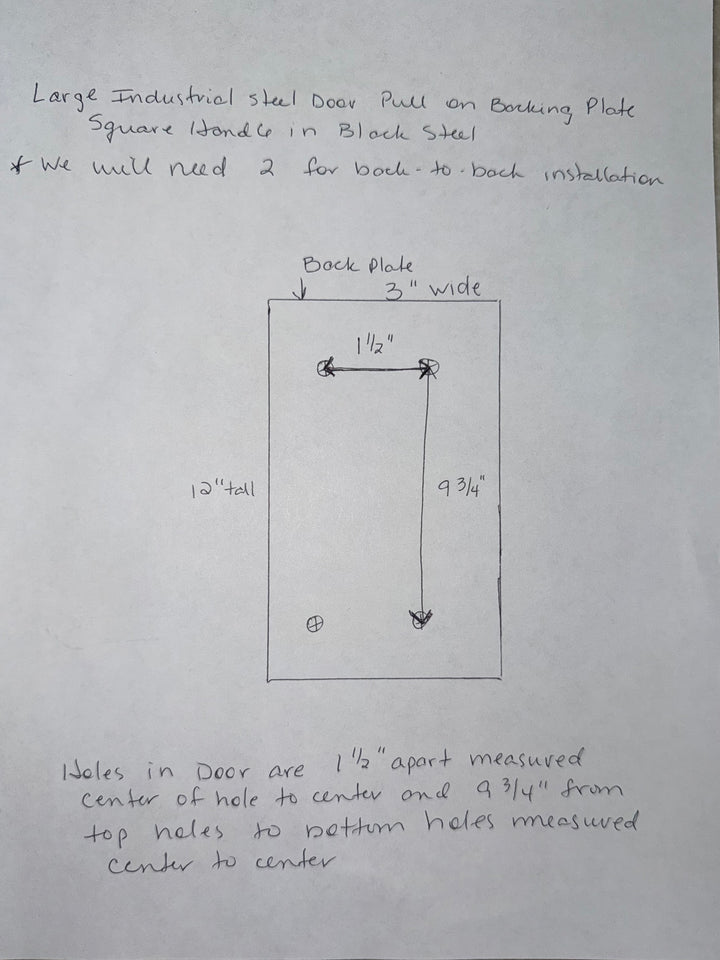 Large Industrial Steel Door Pull on Backing Plate
Square Handle in Black Steel
* We will need 2 for back-to-back installation
Back Plate
3" wide
1 1/2"
12" tall
9 3/4"
Holes in Door are 1 1/2" apart measured
center of hole to center and 9 3/4" from
top holes to bottom holes measured
center to center